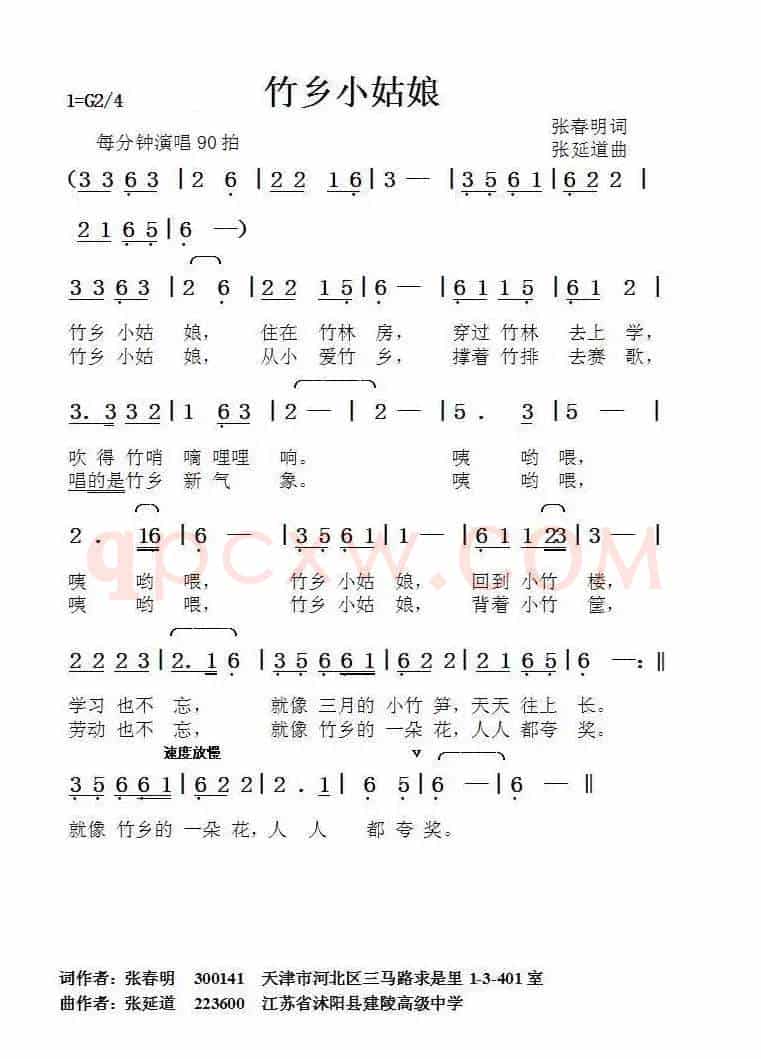 竹乡小姑娘
1=G2/4
每分钟演唱90拍
张春明词
张延道曲
(3 3 6 3 | 2 6 | 2 2 1 6 | 3 — | 3 5 6 1 | 6 2 2 |
2 1 6 5 | 6 —)
3 3 6 3 | 2 6 | 2 2 1 5 | 6 — | 6 1 1 5 | 6 1 2 |
竹乡 小姑 娘， 住在 竹林 房， 穿过 竹林 去上 学，
竹乡 小姑 娘， 从小 爱竹 乡， 撑着 竹排 去赛 歌，
3. 3 3 2 | 1 6 3 | 2 — | 2 — | 5 . 3 | 5 — |
吹 得 竹哨 嘀 哩哩 响。 咦 哟 喂，
唱的是竹乡 新 气 象。 咦 哟 喂，
2 . 1 6 | 6 — | 3 5 6 1 | 1 — | 6 1 1 2 3 | 3 — |
咦 哟 喂， 竹乡 小姑 娘， 回到 小竹 楼，
咦 哟 喂， 竹乡 小姑 娘， 背着 小竹 筐，
qpcxw.COM
2 2 2 3 | 2. 1 6 | 3 5 6 6 1 | 6 2 2 | 2 1 6 5 | 6 — :‖
学习 也不 忘， 就像 三月的 小竹 笋，天天 往上 长。
劳动 也不 忘， 就像 竹乡的 一朵 花，人人 都夸 奖。
速度放慢 v
3 5 6 6 1 | 6 2 2 | 2 . 1 | 6 5 | 6 — | 6 — ‖
就像 竹乡的 一朵 花，人 人 都 夸 奖。
词作者：张春明 300141 天津市河北区三马路求是里 1-3-401 室
曲作者：张延道 223600 江苏省沭阳县建陵高级中学